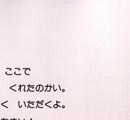 ここで
くれたのかい。
く いただくよ。